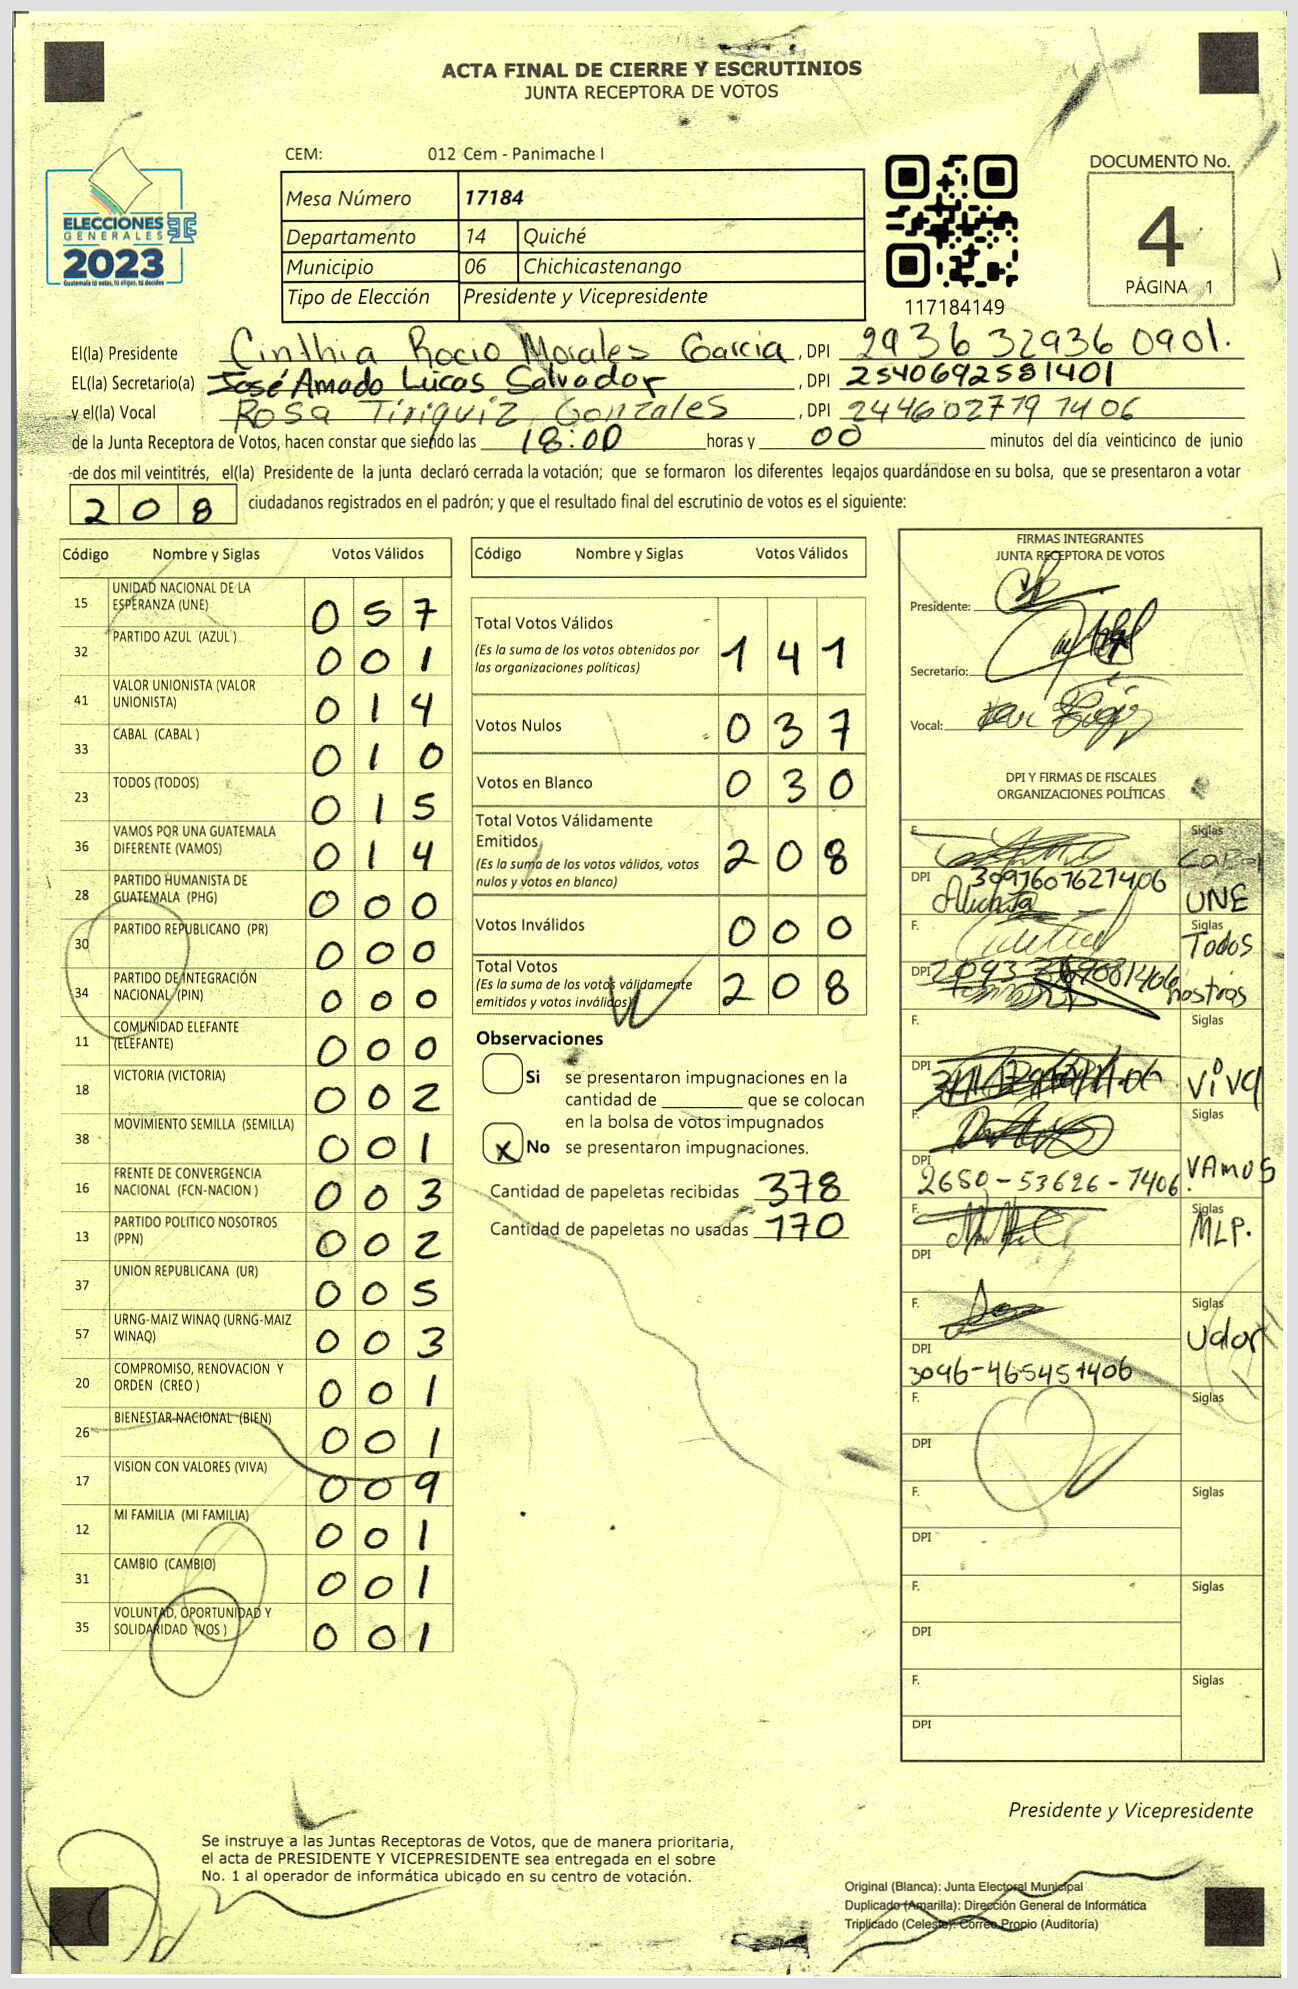 ACTA FINAL DE CIERRE Y ESCRUTINIOS
JUNTA RECEPTORA DE VOTOS
CEM: 012 Cem - Panimache I
DOCUMENTO No.
4
PÁGINA 1
ELECCIONES
GENERALES
2023
Guatemala tú votas, tú eliges, tú decides
Mesa Número 17184
Departamento 14 Quiché
Municipio 06 Chichicastenango
Tipo de Elección Presidente y Vicepresidente
117184149
El(la) Presidente Cinthia Rocio Morales Garcia, DPI 2936 32936 0901.
EL(la) Secretario(a) José Amado Lucas Salvador, DPI 2540692581401
y el(la) Vocal Rosa Tiriquiz Gonzales, DPI 2446027791406
de la Junta Receptora de Votos, hacen constar que siendo las 18:00 horas y 00 minutos del día veinticinco de junio
de dos mil veintitrés, el(la) Presidente de la junta declaró cerrada la votación; que se formaron los diferentes legajos guardándose en su bolsa, que se presentaron a votar
208 ciudadanos registrados en el padrón; y que el resultado final del escrutinio de votos es el siguiente:
Código Nombre y Siglas Votos Válidos
15 UNIDAD NACIONAL DE LA ESPERANZA (UNE) 057
32 PARTIDO AZUL (AZUL ) 001
41 VALOR UNIONISTA (VALOR UNIONISTA) 014
33 CABAL (CABAL ) 010
23 TODOS (TODOS) 015
36 VAMOS POR UNA GUATEMALA DIFERENTE (VAMOS) 014
28 PARTIDO HUMANISTA DE GUATEMALA (PHG) 000
30 PARTIDO REPUBLICANO (PR) 000
34 PARTIDO DE INTEGRACIÓN NACIONAL (PIN) 000
11 COMUNIDAD ELEFANTE (ELEFANTE) 000
18 VICTORIA (VICTORIA) 002
38 MOVIMIENTO SEMILLA (SEMILLA) 001
16 FRENTE DE CONVERGENCIA NACIONAL (FCN-NACION ) 003
13 PARTIDO POLITICO NOSOTROS (PPN) 002
37 UNION REPUBLICANA (UR) 005
57 URNG-MAIZ WINAQ (URNG-MAIZ WINAQ) 003
20 COMPROMISO, RENOVACION Y ORDEN (CREO ) 001
26 BIENESTAR NACIONAL (BIEN) 001
17 VISION CON VALORES (VIVA) 009
12 MI FAMILIA (MI FAMILIA) 001
31 CAMBIO (CAMBIO) 001
35 VOLUNTAD, OPORTUNIDAD Y SOLIDARIDAD (VOS ) 001
Código Nombre y Siglas Votos Válidos
Total Votos Válidos 141
(Es la suma de los votos obtenidos por
las organizaciones políticas)
Votos Nulos 037
Votos en Blanco 030
Total Votos Válidamente
Emitidos 208
(Es la suma de los votos válidos, votos
nulos y votos en blanco)
Votos Inválidos 000
Total Votos 208
(Es la suma de los votos válidamente
emitidos y votos inválidos)
Observaciones
Si se presentaron impugnaciones en la
cantidad de ________ que se colocan
en la bolsa de votos impugnados
x No se presentaron impugnaciones.
Cantidad de papeletas recibidas 378
Cantidad de papeletas no usadas 170
FIRMAS INTEGRANTES
JUNTA RECEPTORA DE VOTOS
Presidente:
Secretario:
Vocal:
DPI Y FIRMAS DE FISCALES
ORGANIZACIONES POLÍTICAS
F. Siglas
DPI 3097607627406
UNE
F. Siglas Todos
DPI
nostros
F. Siglas
DPI viva
F. Siglas
DPI 2650-53626-1406 VAmos
F. Siglas MLP.
DPI
F. Siglas Valor
DPI 3096-465451406
F. Siglas
DPI
F. Siglas
DPI
F. Siglas
DPI
F. Siglas
DPI
Presidente y Vicepresidente
Se instruye a las Juntas Receptoras de Votos, que de manera prioritaria,
el acta de PRESIDENTE Y VICEPRESIDENTE sea entregada en el sobre
No. 1 al operador de informática ubicado en su centro de votación.
Original (Blanca): Junta Electoral Municipal
Duplicado (Amarilla): Dirección General de Informática
Triplicado (Celeste): Correo Propio (Auditoría)